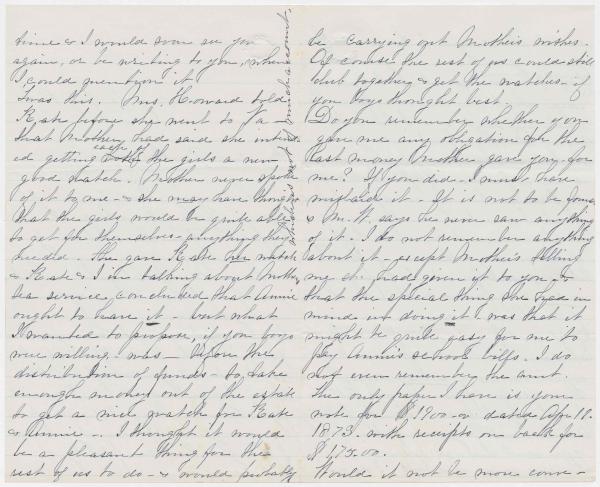 time & I would soon see you
again, or be writing to you, when
I could mention it
Twas this. Mrs. Howard told
Kate before she went to Pa -
that Mother had said she intend-
ed getting each of the girls a new
good watch. Mother never spoke
of it to me - & she may have thought
that the girls would be quite able
to get for themselves anything they
needed. She gave Kate her watch
& Kate & I in talking about Mother's
tea service, concluded that Annie
ought to have it - but what
I wanted to propose, if you boys
were willing was - Upon the
distribution of funds - to take
enough money out of the estate
to get a nice watch for Kate
& Annie - I thought it would
be a pleasant thing for the
rest of us to do - & would probably
be carrying out Mother's wishes.
Of course the rest of us could still
club together & get the watches - if
you boys thought best
Do you remember whether you
gave me any obligation for the
last money Mother gave you, for
me? If you did - I must have
mislaid it - It is not to be found
& Mr. W. says he never saw anything
of it. I do not remember anything
about it, except Mother's telling
me she had given it to you &
that the special thing she had in
mind in doing it was that it
might be quite easy for me to
pay Annie's school bills. I do
not even remember the amt.
The only paper I have is your
note for $1900 - dated Apr. 11.
1873. with receipts on back for
$175.00.
Would it not be more conve-